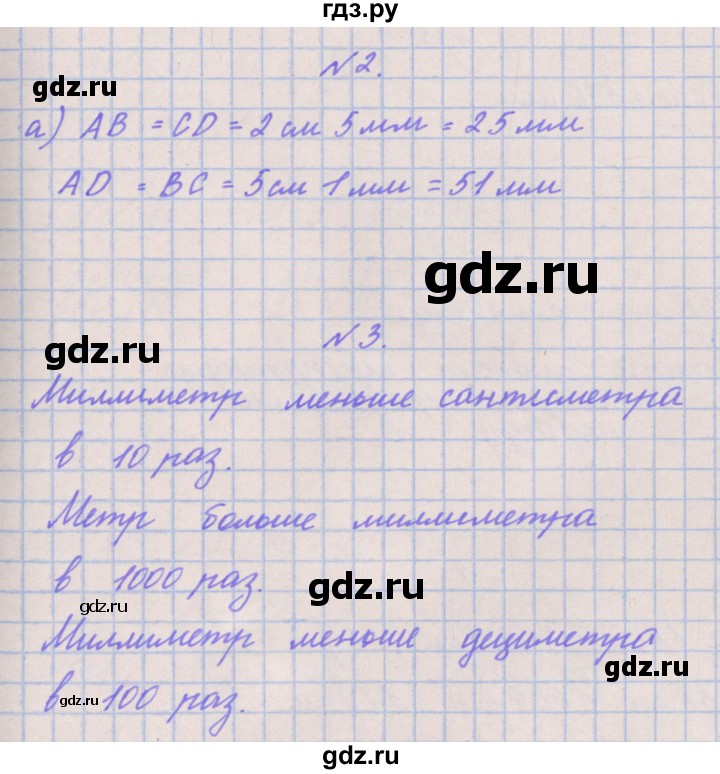 гдз.ру
№2.
gdz.ru
а) AB = CD = 2 см 5 мм = 25 мм
AD = BC = 5 см 1 мм = 51 мм
gdz.ru
№3.
gdz.ru
Миллиметр меньше сантиметра
в 10 раз.
Метр больше миллиметра
в 1000 раз.
gdz.ru
gdz.ru
Миллиметр меньше дециметра
gdz.ru
в 100 раз.
gdz.ru
gdz.ru